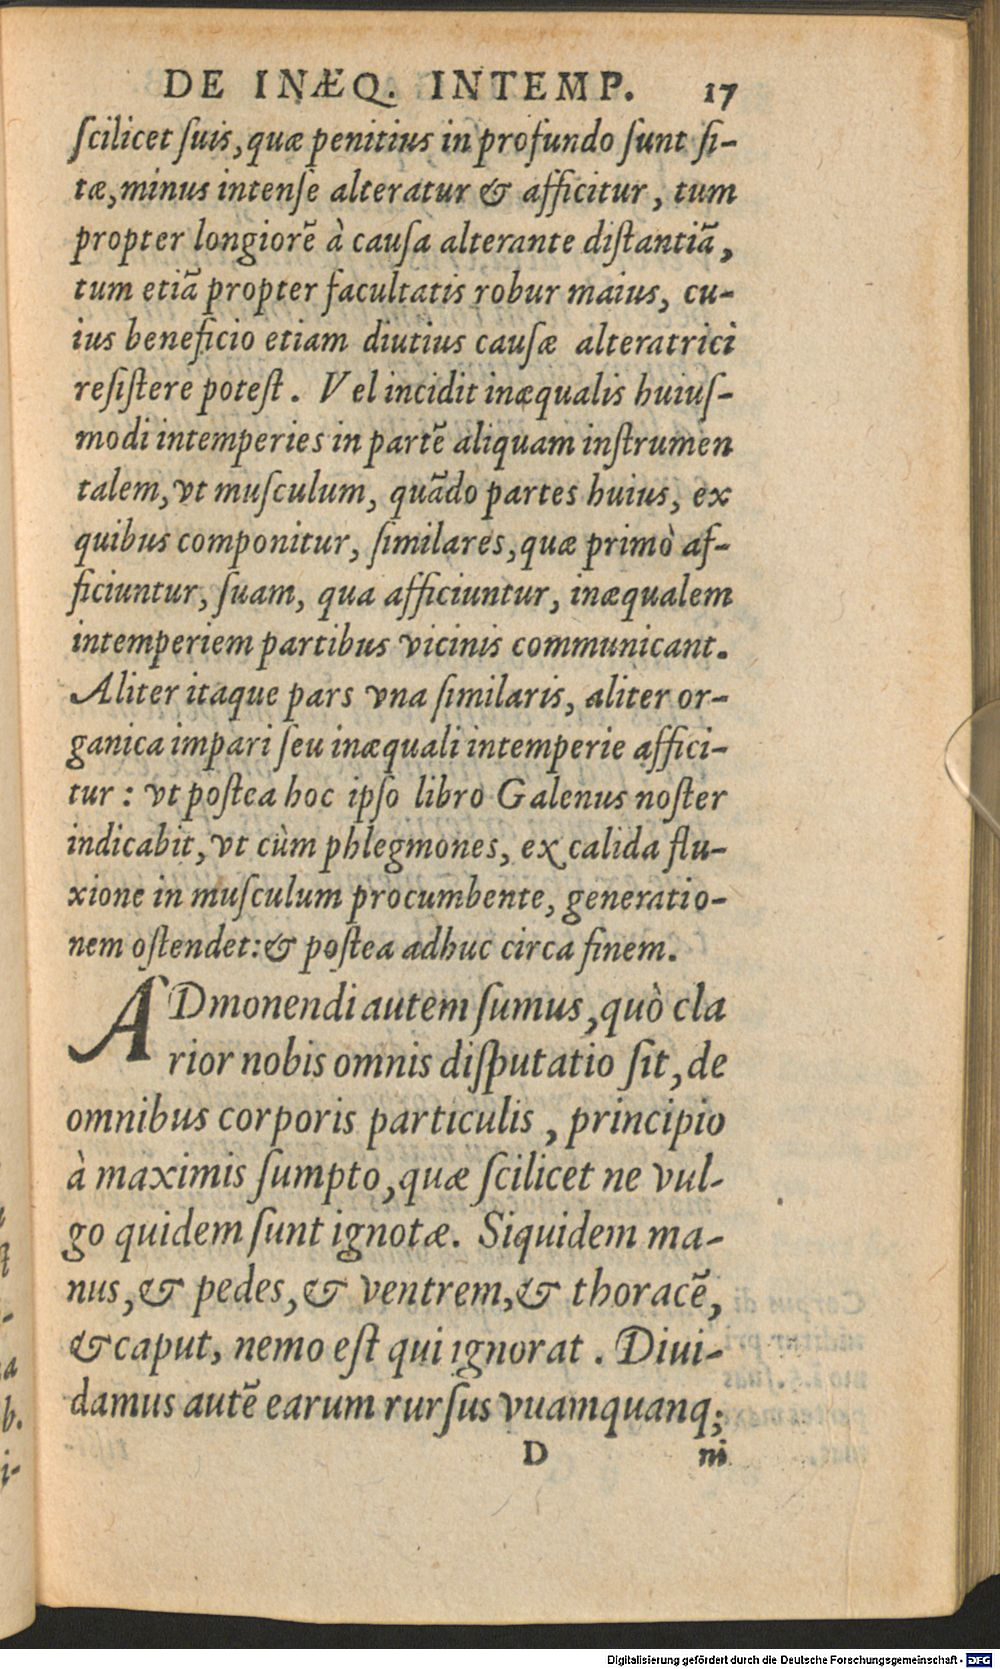 DE INÆQ. INTEMP. 17
ſcilicet ſuis, quæ penitius in profundo ſunt ſi-
tæ, minus intenſè alteratur & afficitur, tum
propter longiorē à cauſa alterante diſtantiā,
tum etiā propter facultatis robur maius, cu-
ius beneficio etiam diutius cauſæ alteratrici
reſiſtere poteſt. Vel incidit inæqualis huiuſ-
modi intemperies in partē aliquam inſtrumen
talem, vt muſculum, quādo partes huius, ex
quibus componitur, ſimilares, quæ primò af-
ficiuntur, ſuam, qua afficiuntur, inæqualem
intemperiem partibus vicinis communicant.
Aliter itaque pars vna ſimilaris, aliter or-
ganica impari ſeu inæquali intemperie affici-
tur: vt poſtea hoc ipſo libro Galenus noſter
indicabit, vt cùm phlegmones, ex calida flu-
xione in muſculum procumbente, generatio-
nem oſtendet: & poſtea adhuc circa finem.
ADmonendi autem ſumus, quò cla
rior nobis omnis diſputatio ſit, de
omnibus corporis particulis, principio
à maximis ſumpto, quæ ſcilicet ne vul-
go quidem ſunt ignotæ. Siquidem ma-
nus, & pedes, & ventrem, & thoracē,
& caput, nemo eſt qui ignorat. Diui-
damus autē earum rurſus vnamquanq;
D ni
Digitalisierung gefördert durch die Deutsche Forschungsgemeinschaft - DFG